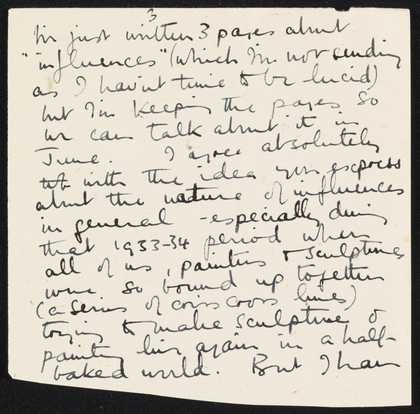 I'm just written 3 pages about
3
"influences" (which I'm not sending
as I havn't time to be lucid)
but I'm keeping the pages so
we can talk about it in
June. I agree absolutely
with the idea you express
about the nature of influences
in general - especially during
that 1933-34 period when
all of us, painters & sculptures
were so bound up together
(a series of criss cross lines)
trying to make sculpture &
painting live again in a half-
baked world. But I have